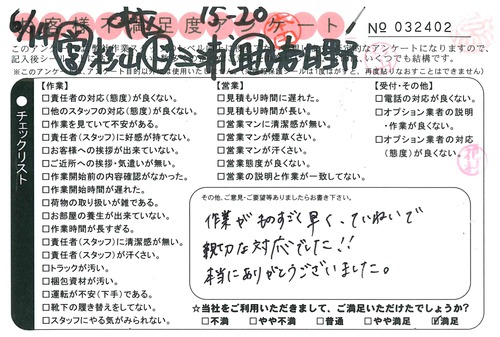 お客様不満足度アンケート
15-20
No 032402
6/19
このアンケートは
的なアンケートになりますので、
記入後シール
いくつでも結構です。
チェックリスト
【作業】
□責任者の対応(態度)が良くない。
□他のスタッフの対応(態度)が良くない。
□作業を見ていて不安がある。
□責任者(スタッフ)に好感が持てない。
□お客様への挨拶が出来ていない。
□ご近所への挨拶・気遣いが無い。
□作業開始前の内容確認がなかった。
□作業開始時間が遅れた。
□荷物の取り扱いが雑である。
□お部屋の養生が出来ていない。
□作業時間が長すぎる。
□責任者(スタッフ)に清潔感が無い。
□責任者(スタッフ)が汗くさい。
□トラックが汚い。
□梱包資材が汚い。
□運転が不安(下手)である。
□靴下の履き替えをしてない。
□スタッフにやる気がみられない。
【営業】
□見積もり時間に遅れた。
□見積もり時間が長い。
□営業マンに清潔感が無い。
□営業マンが煙草くさい。
□営業マンが汗くさい。
□営業態度が良くない。
□営業の説明と作業が一致してない。
【受付・その他】
□電話の対応が良くない。
□オプション業者の説明
・作業が良くない。
□オプション業者の対応
(態度)が良くない。
その他、ご意見・ご要望等ありましたらお書き下さい。
作業がものすごく早く、ていねいで
親切な対応でした!!
本当にありがとうございました。
☆当社をご利用いただきまして、ご満足いただけたでしょうか?
□不満 □やや不満 □普通 □やや満足 ☑満足